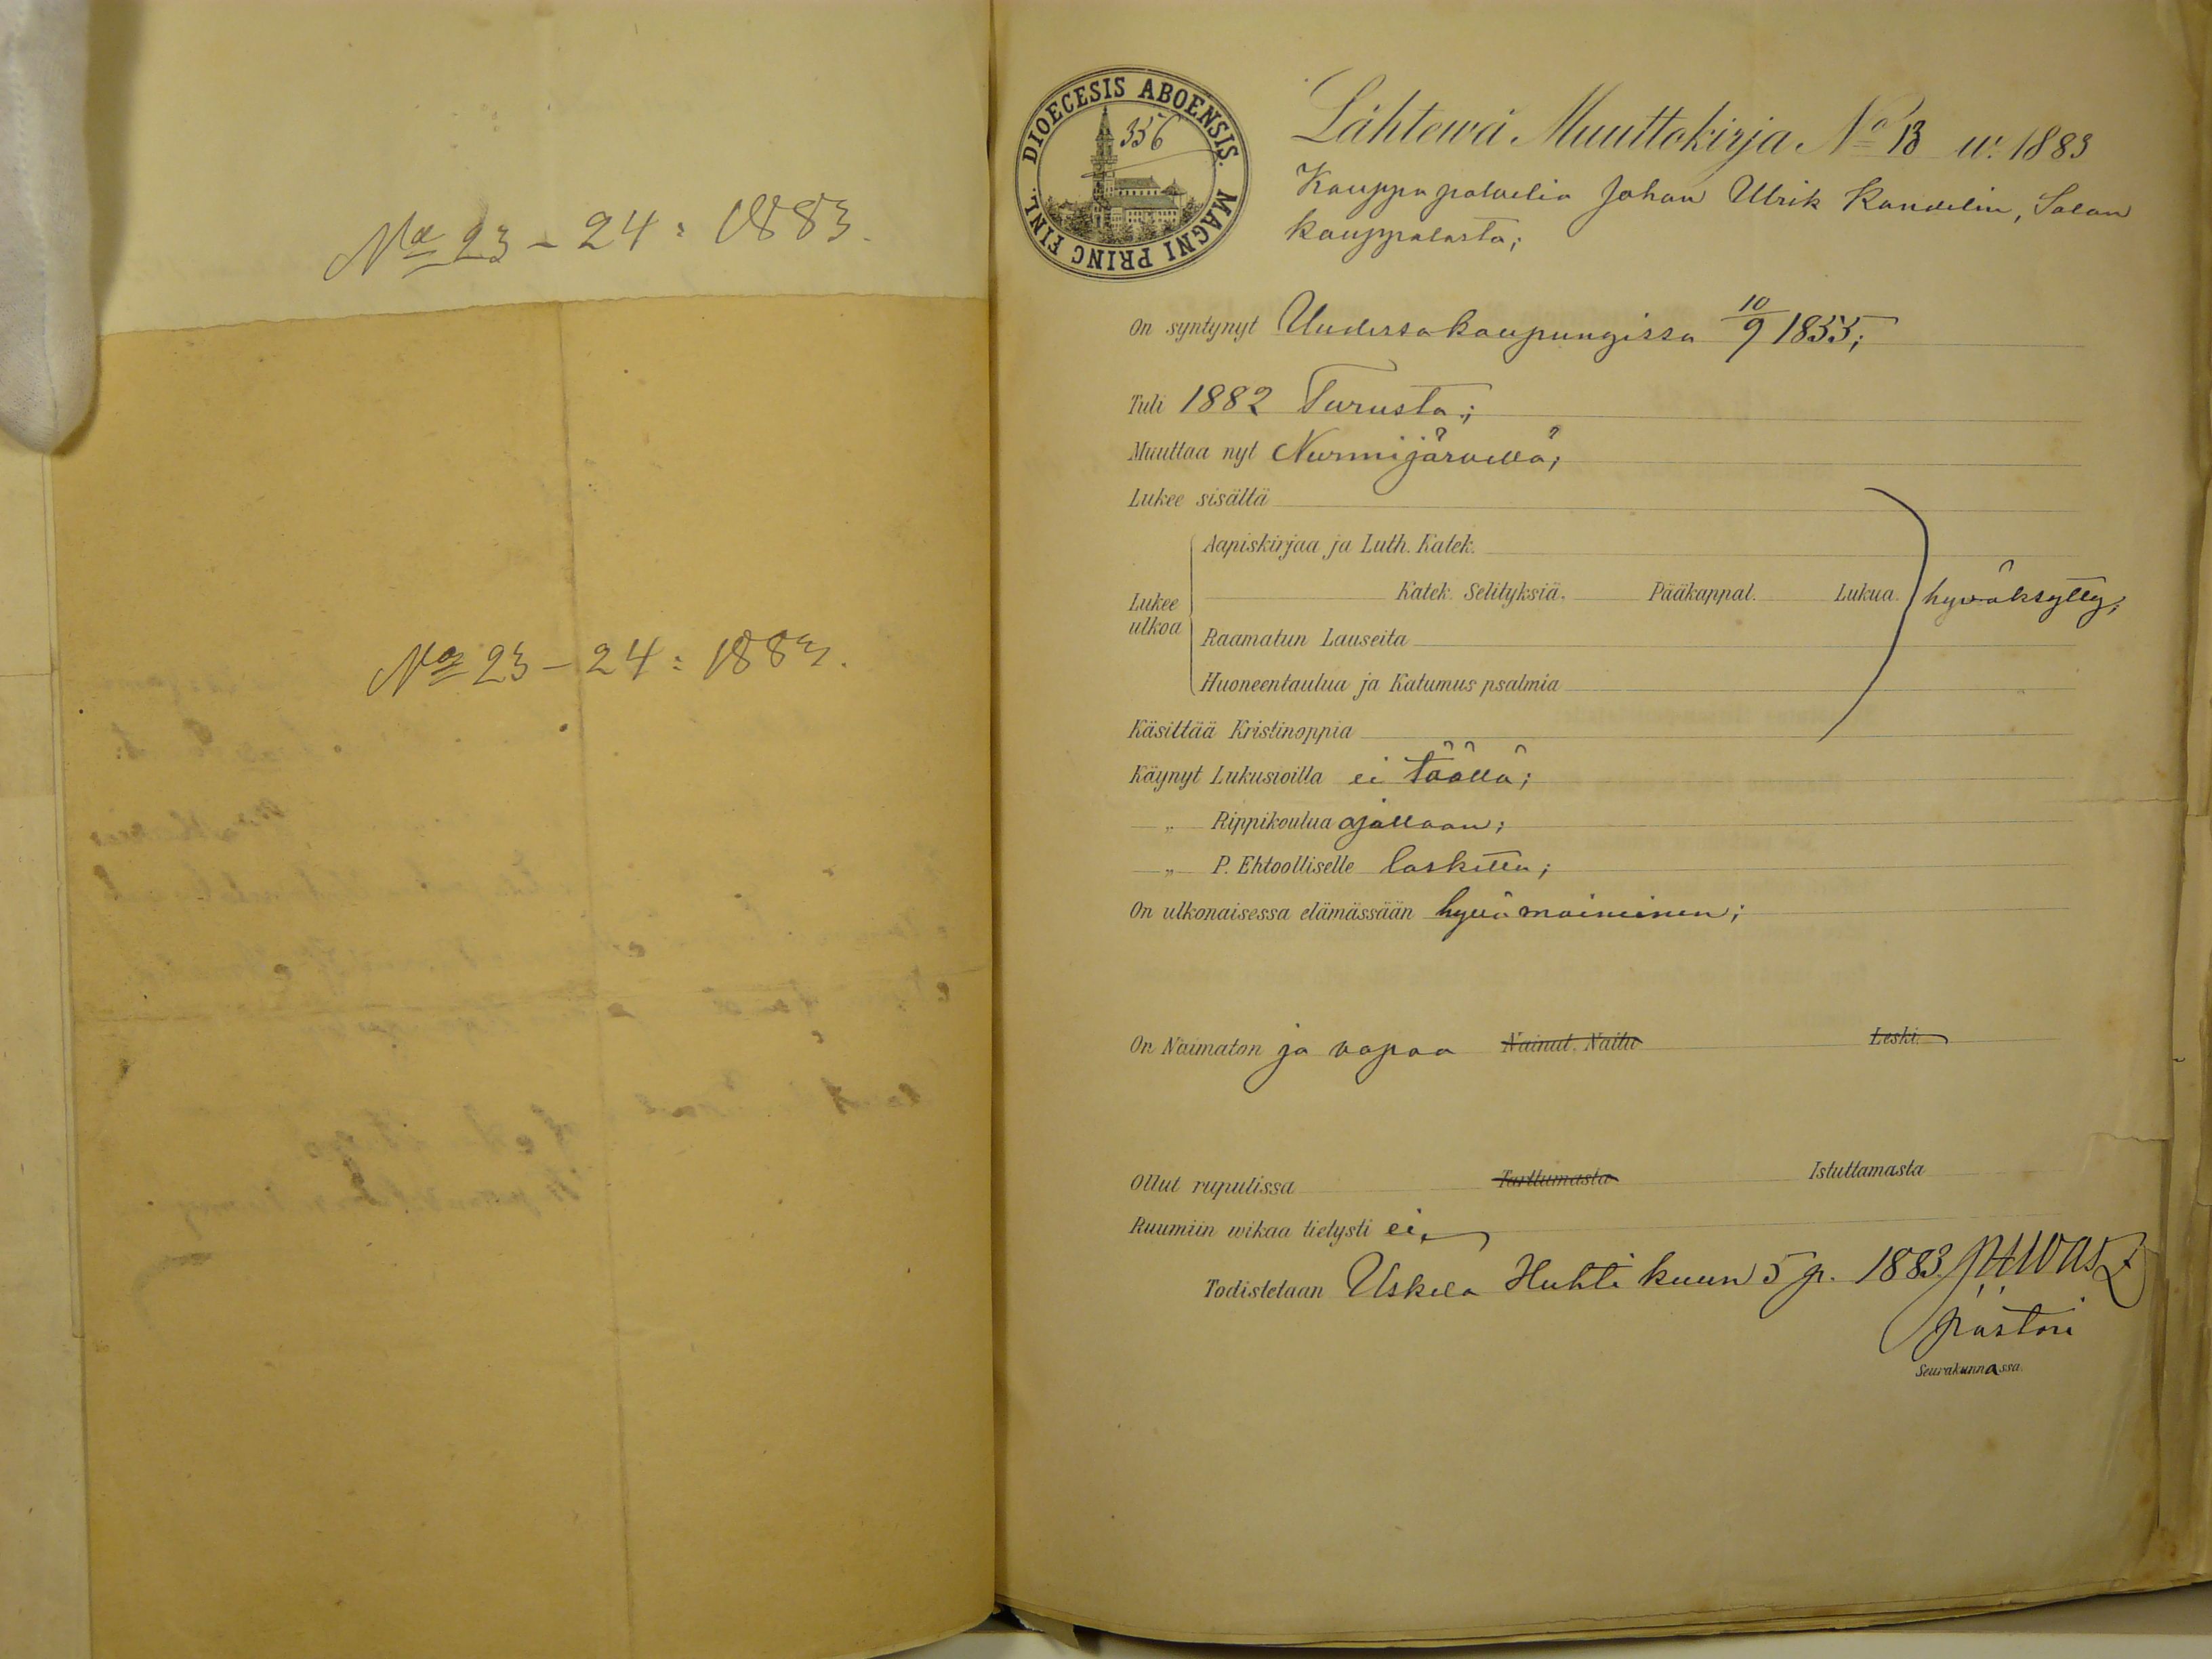 No 23 - 24 : 1883.
No 23 - 24 : 1883.
DIOECESIS ABOENSIS. MAGNI PRINC FINL.
356
Lähtewä Muuttokirja No 13 w. 1883
Kauppapalvelia Johan Ulrik Kandelin, Salon
kauppalasta;
On syntynyt Uudessakaupungissa 10/9 1855;
Tuli 1882 Turusta;
Muuttaa nyt Nurmijärvellä;
Lukee sisältä
Aapiskirjaa ja Luth. Katek.
Lukee ulkoa
Katek. Selityksiä. Pääkappal. Lukua. hyväksytty;
Raamatun Lauseita
Huoneentaulua ja Katumus psalmia
Käsittää Kristinoppia
Käynyt Lukusioilla ei täällä;
„ Rippikoulua ajallaan;
„ P. Ehtoolliselle laskettu;
On ulkonaisessa elämässään hyvämaineinen;
On Naimaton ja vapaa Nainut, Naitu Leski.
Ollut rupulissa Tarttumasta Istuttamasta
Ruumiin wikaa tietysti ei,
Todistetaan Uskela Huhtikuun 5 p. 1883.
pastori
Seurakunnassa.